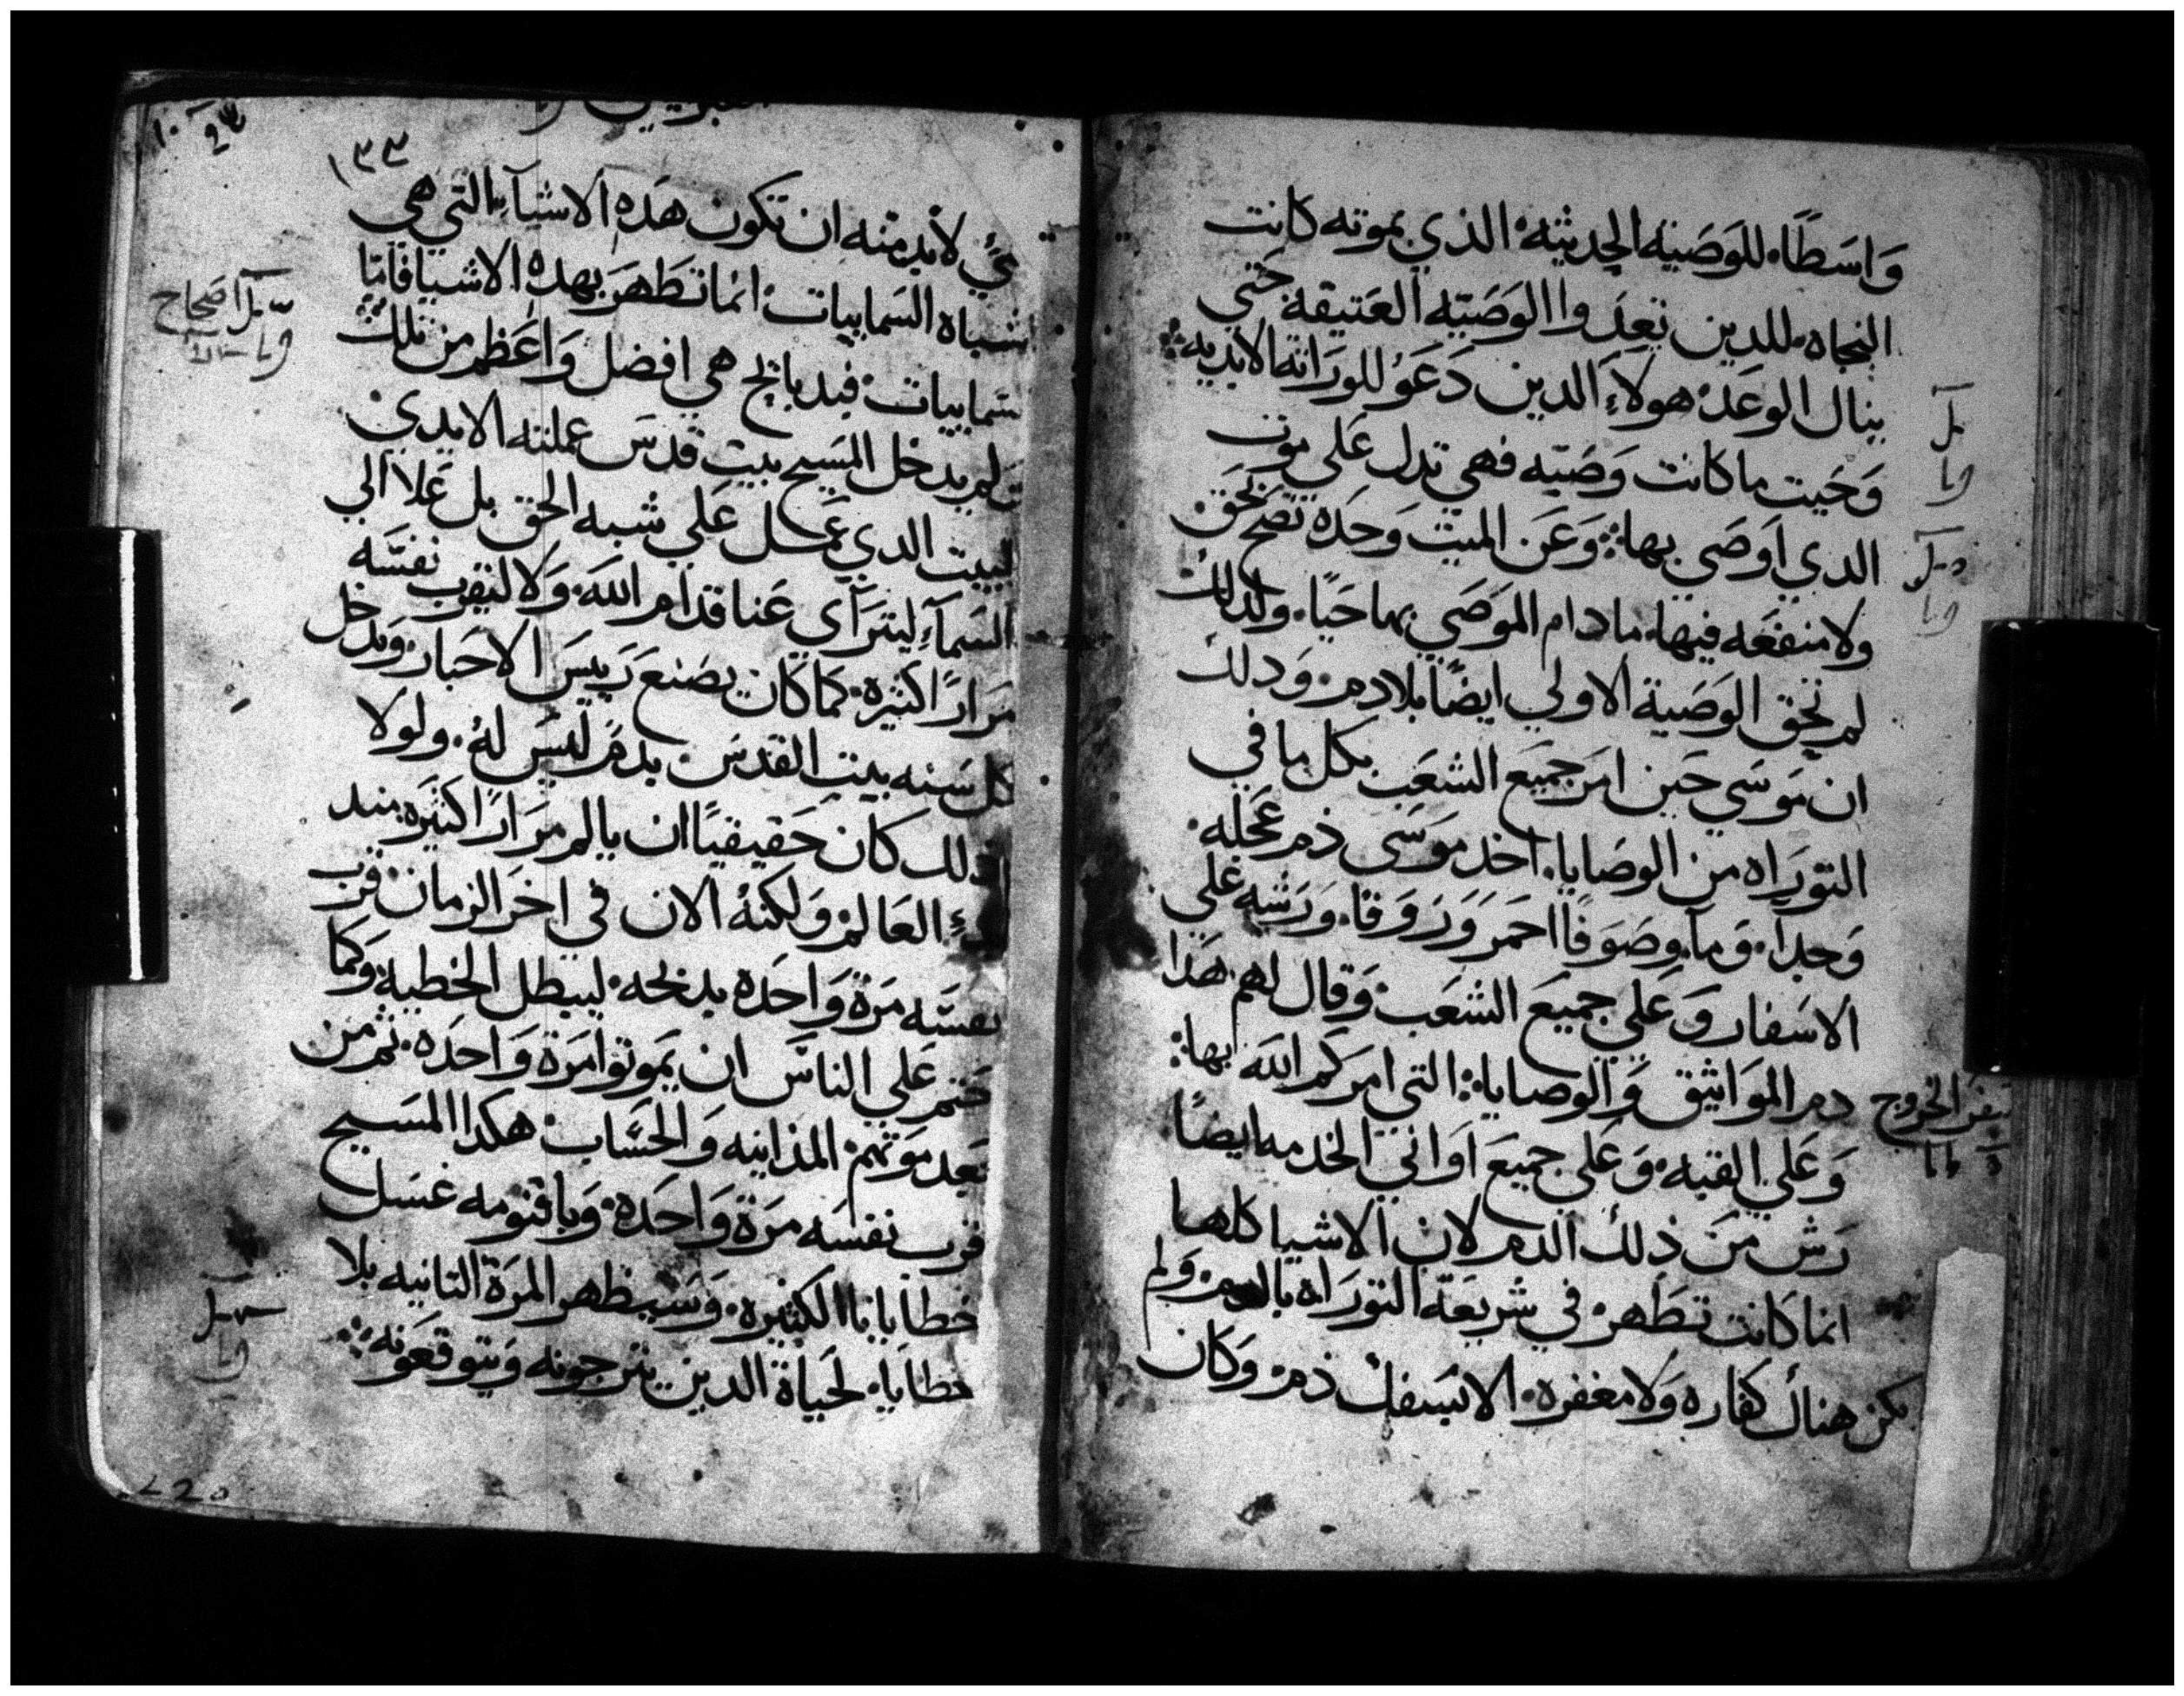 وَاسَطًا، للوَصَيه الحديثه الذي بموته كانت
النجاه، للدين تعدوا الوَصَيّه العَتيقه حَتي
ينال الوعَد هولآءِ الدين دَعَوُ للورَاثه الابديه
وَحَيت ما كانت وَصَيّه فهي تدل عَلي موت
الدي اَوصَي بها: وَعَن الميت وَحدَه تصَح تحَق
ولا منفعَه فيها، ما دام الموَصَي بها حَيًا، ولذلك
لم تحَق الوَصَية الاولي ايضًا بلا دم، وَدلك
ان مَوسَي حَين امَر جَميَع الشعَب بكل ما في
التورَاه من الوصَايا، اخد موَسَي ذم عَجله،
وَجدا، وَمآ، وصَوَفًا احمَر وَزوَفا، وَرَشه عَلي
الاسَفار وَعَلي جميَع الشعَب، وَقال لهم هَدا
دم الموَاثيق وَالوصايا، التي امرَكم اللهَ بها:
سِفرَ الخروج
وَعَلي القبه، وَعَلي جميَع اَوَاني الخدمه ايضًا
رَش مَن ذلك الدم لان الاشيا كلها
انما كانت تطَهر في شريعَة التورَاه بالدم، وَلم
يكن هناك كفاره وَلا مغفره، الا بسَفك ذم، وَكان
١٣٣
يٌ لابد منه ان تكون هَدهِ الاشيآء التي هي
اشباه السَمايات انما تطَهرَ بهدهِ الاشيا فاما
سَماييات فبدبايح هي افضل وَاعَظم من تلك
وَلم يدخل المسَيح بيت قدسَ عملته الايدي
لبيت الدي عَمل عَلي شبه الحق بل عَلا الي
السَمآء ليترَآي عَنا قدام اللهَ، وَلا ليقرب نفسَه
مرَارًا كثيره، كما كان يصَنع رَييسَ الاحَبار، وَيدخل
كل سَنه بيت القدسَ بدمَ ليسَ لهُ، ولولا
ذلك كان حَقيقيًا ان يالم مرَارًا كثيَره منذ
بدءِ العَالم وَلكنهُ الان في اخَر الزمان قرب
نفسَه مرَة وَاحَده بدبحه، ليبطل الخطيه وَكما
حَتم عَلي الناسَ ان يموتوا مرَة وَاحدَه، ثم من
بعَد موَتهم المداينه وَالحسَاب هكدا المسَيح
قرب نفسَه مرَة وَاحَدة، وَباقنومه غسَل
خطايانا الكثيره، وَسَيظهر المرَة التانيه بلا
خطايا، لحَياة الدين يترجونه وَيتوقعَونه